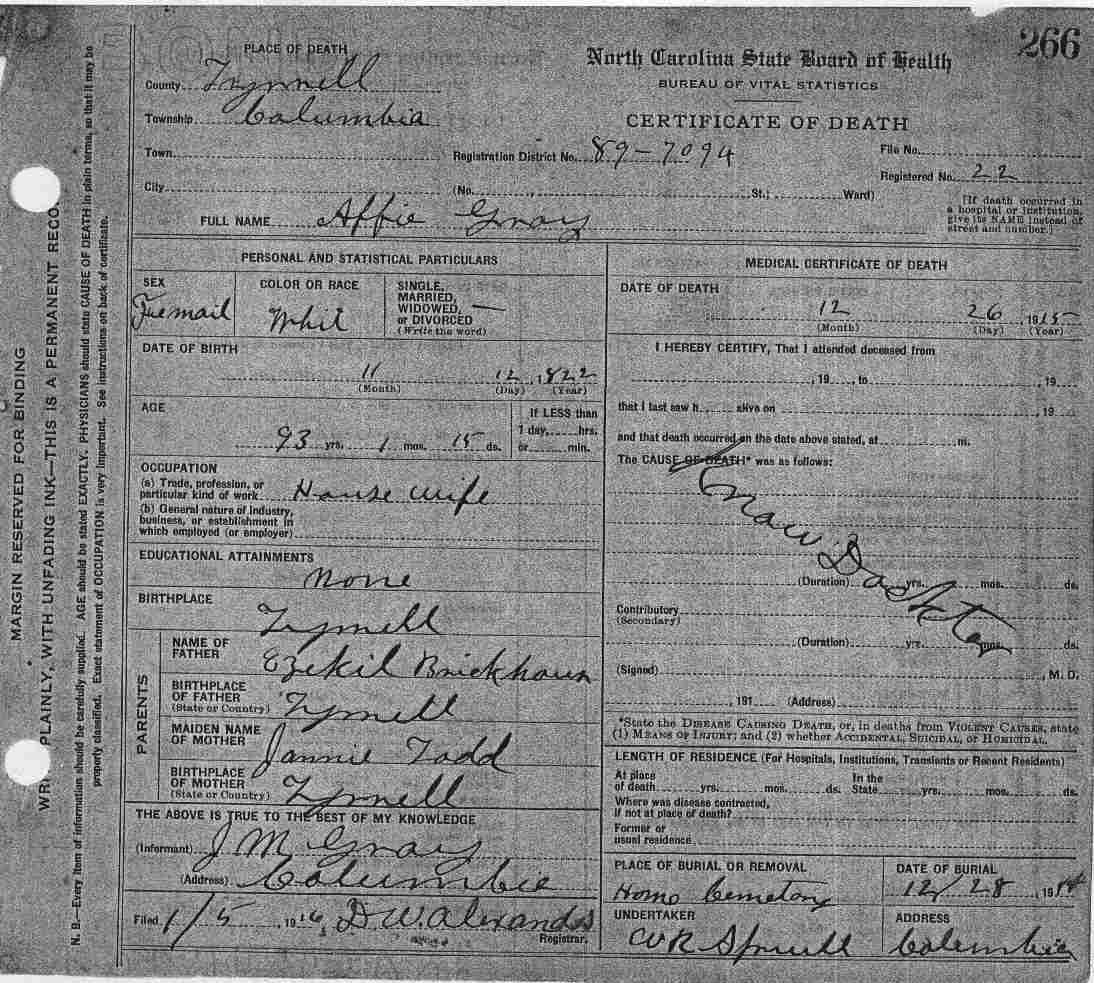 266
PLACE OF DEATH
North Carolina State Board of Health
BUREAU OF VITAL STATISTICS
CERTIFICATE OF DEATH
County Tyrrell
Township Columbia
Town
Registration District No. 89-7094
File No.
Registered No. 22
City (No. , St.; Ward)
[If death occurred in a hospital or institution, give its NAME instead of street and number.]
FULL NAME Affie Gray
PERSONAL AND STATISTICAL PARTICULARS
SEX
Femail
COLOR OR RACE
Whit
SINGLE, MARRIED, WIDOWED, or DIVORCED (Write the word) —
DATE OF BIRTH
11 12, 1822
(Month) (Day) (Year)
AGE
93 yrs. 1 mos. 15 ds.
If LESS than 1 day, hrs. or min.
OCCUPATION
(a) Trade, profession, or particular kind of work House wife
(b) General nature of industry, business, or establishment in which employed (or employer)
EDUCATIONAL ATTAINMENTS
None
BIRTHPLACE
Tyrrell
PARENTS
NAME OF FATHER
Ezekil Brickhous
BIRTHPLACE OF FATHER (State or Country) Tyrrell
MAIDEN NAME OF MOTHER Jannie Todd
BIRTHPLACE OF MOTHER (State or Country) Tyrrell
THE ABOVE IS TRUE TO THE BEST OF MY KNOWLEDGE
(Informant) J M Gray
(Address) Columbia
Filed 1/5, 1916, D. W. Alexander
Registrar.
MEDICAL CERTIFICATE OF DEATH
DATE OF DEATH
12 26, 1915
(Month) (Day) (Year)
I HEREBY CERTIFY, That I attended deceased from
, 19 , to , 19
that I last saw h alive on , 19
and that death occurred on the date above stated, at m.
The CAUSE OF DEATH* was as follows:
(Duration) yrs. mos. ds.
Contributory
(Secondary)
(Duration) yrs. mos. ds.
(Signed) , M. D.
, 191 (Address)
*State the DISEASE CAUSING DEATH, or, in deaths from VIOLENT CAUSES, state
(1) MEANS OF INJURY; and (2) whether ACCIDENTAL, SUICIDAL, or HOMICIDAL.
LENGTH OF RESIDENCE (For Hospitals, Institutions, Transients or Recent Residents)
At place of death yrs. mos. ds. In the State yrs. mos. ds.
Where was disease contracted, if not at place of death?
Former or usual residence
PLACE OF BURIAL OR REMOVAL
Home Cemetary
DATE OF BURIAL
12/28, 191
UNDERTAKER
W R Spruill
ADDRESS
Columbia
MARGIN RESERVED FOR BINDING
PLAINLY, WITH UNFADING INK—THIS IS A PERMANENT RECO
N. B.—Every item of information should be carefully supplied. AGE should be stated EXACTLY. PHYSICIANS should state CAUSE OF DEATH in plain terms, so that it may be
properly classified. Exact statement of OCCUPATION is very important. See instructions on back of certificate.